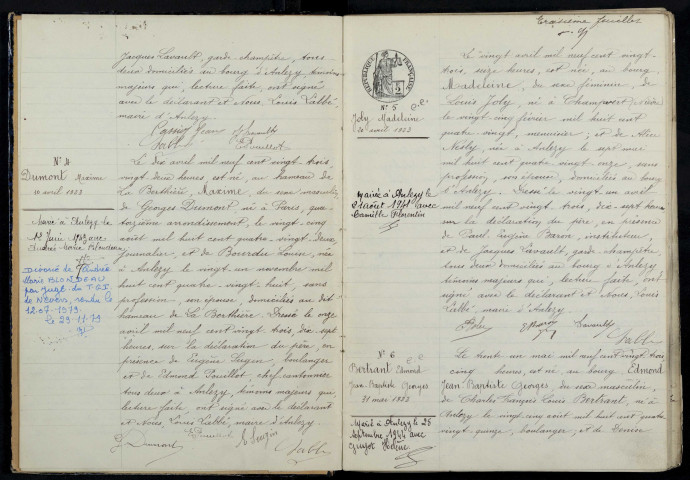 Jacques Lavault, garde champêtre, tous
deux domiciliés au bourg d'Anlezy, témoins
majeurs qui, lecture faite, ont signé
avec le déclarant et Nous, Louis Labbé,
maire d'Anlezy.
N° 4
Dumont Maxime
10 avril 1923
Marié à Anlezy le
Divorcé de
Marie BLONDEAU
par Jugt du T.G.I.
de NEVERS, rendu le
12.07.1979.
Le 29.11.79
Le dix avril mil neuf cent vingt trois,
vingt deux heures, est né, au hameau de
La Berthière, Maxime, du sexe masculin
de Georges Dumont né à Paris, qua-
torzième arrondissement, le vingt cinq
août mil huit cent quatre-vingt deux,
journalier, et de Louise, née
à Anlezy le vingt un novembre mil
huit cent quatre-vingt huit, sans
profession, son épouse, domiciliés au dit
hameau de La Berthière. Dressé le onze
avril mil neuf cent vingt trois, dix sept
heures, sur la déclaration du père, en
présence de Eugène Seguin, boulanger
et de Edmond Pouillot, chef cantonnier
tous deux à Anlezy, témoins majeurs qui
lecture faite, ont signé avec le déclarant
et Nous, Louis Labbé, maire d'Anlezy.
G. Dumont
Troisième feuillet
RÉPUBLIQUE FRANÇAISE
N° 5
Joly Madeleine
20 avril 1923
Mariée à Anlezy le
2 août 1941 avec
Camille Florentin
Le vingt avril mil neuf cent vingt-
trois, seize heures, est née, au bourg,
Madeleine, du sexe féminin, de
Louis Joly, né à Champvert
le vingt cinq février mil huit cent
quatre vingt, menuisier; et de Alice
née à Anlezy le sept mai
mil huit cent quatre vingt onze, sans
profession, son épouse, domiciliés au bourg
d'Anlezy. Dressé le vingt un avril
mil neuf cent vingt trois, dix-sept heures
sur la déclaration du père, en présence
de Paul Eugène Baron, instituteur,
et de Jacques Lavault, garde champêtre
tous deux domiciliés au bourg d'Anlezy
témoins majeurs qui, lecture faite, ont
signé avec le déclarant et Nous, Louis
Labbé, maire d'Anlezy.
N° 6
Bertrant Edmond
Jean-Baptiste Georges
31 mai 1923
Marié à Anlezy le 26
Septembre 1944 avec
Hélène
Le trente un mai mil neuf cent vingt trois
cinq heures, est né, au bourg, Edmond
Jean Baptiste Georges, du sexe masculin,
de Charles François Louis Bertrant, né à
Anlezy le vingt cinq août mil huit cent quatre
vingt quinze, boulanger, et de Denise